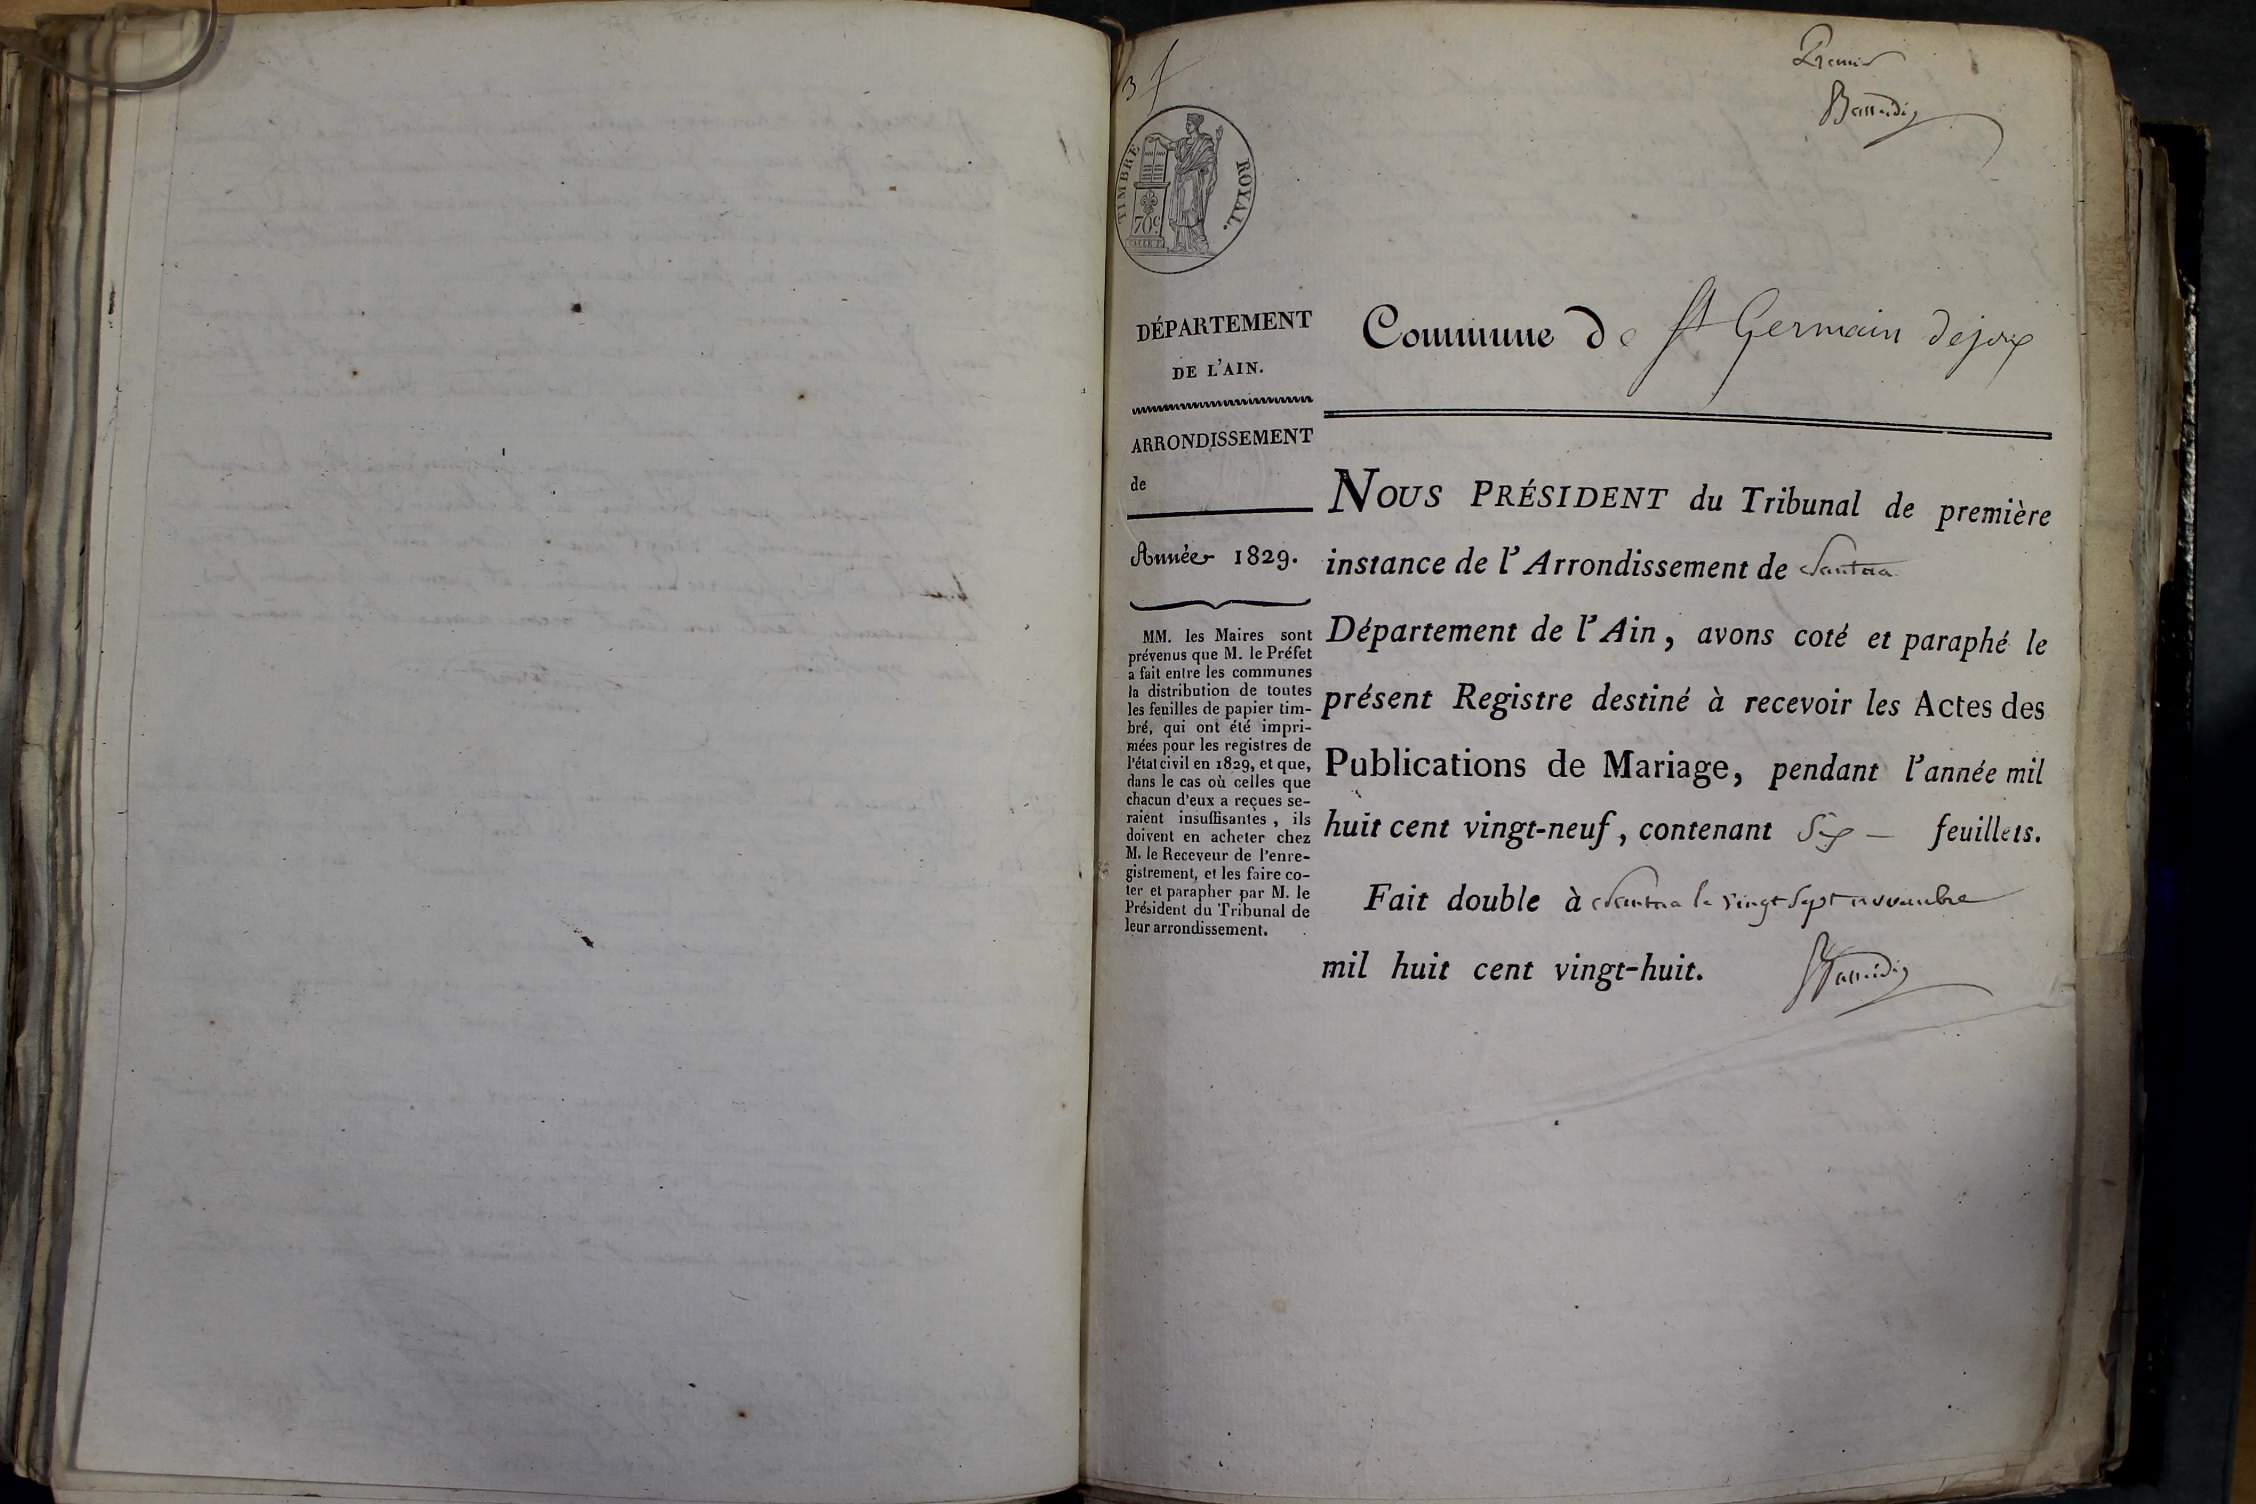 Premier
3 f
TIMBRE ROYAL.
70 c
DÉPARTEMENT
DE L'AIN.
ARRONDISSEMENT
de
Année 1829.
MM. les Maires sont
prévenus que M. le Préfet
a fait entre les communes
la distribution de toutes
les feuilles de papier tim-
bré, qui ont été impri-
mées pour les registres de
l'état civil en 1829, et que,
dans le cas où celles que
chacun d'eux a reçues se-
raient insuffisantes, ils
doivent en acheter chez
M. le Receveur de l'enre-
gistrement, et les faire co-
ter et parapher par M. le
Président du Tribunal de
leur arrondissement.
Commune de St Germain dejoux
NOUS PRÉSIDENT du Tribunal de première
instance de l'Arrondissement de Nantua
Département de l'Ain, avons coté et paraphé le
présent Registre destiné à recevoir les Actes des
Publications de Mariage, pendant l'année mil
huit cent vingt-neuf, contenant Six — feuillets.
Fait double à Nantua le vingt sept novembre
mil huit cent vingt-huit.